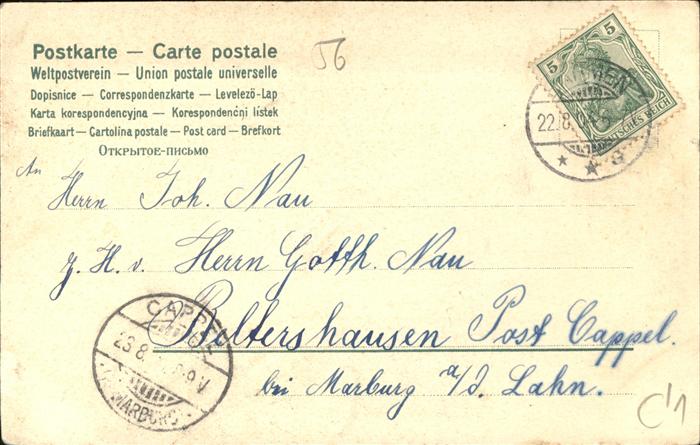 Postkarte — Carte postale
Weltpostverein — Union postale universelle
Dopisnice — Correspondenzkarte — Levelező-Lap
Karta korespondencyjna — Korespondenčni lístek
Briefkaart — Cartolina postale — Post card — Brefkort
Открытое-письмо
56
5
5
DEUTSCHES REICH
22.8.
An
Herrn Joh. Nau
z. H. v. Herrn Gotth. Nau
Boltershausen Post Cappel.
bei Marburg a/d. Lahn.
CAPPEL
23.8.
8-9V
MARBURG
C'1